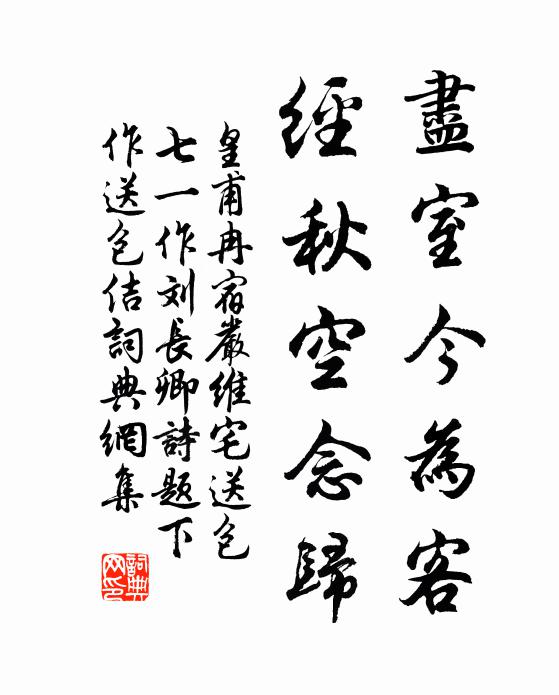 盡室今為客
經秋空念歸
皇甫冉宿嚴維宅送包
七一作刘長卿詩题下
作送包佶詞典網集
詞典網印